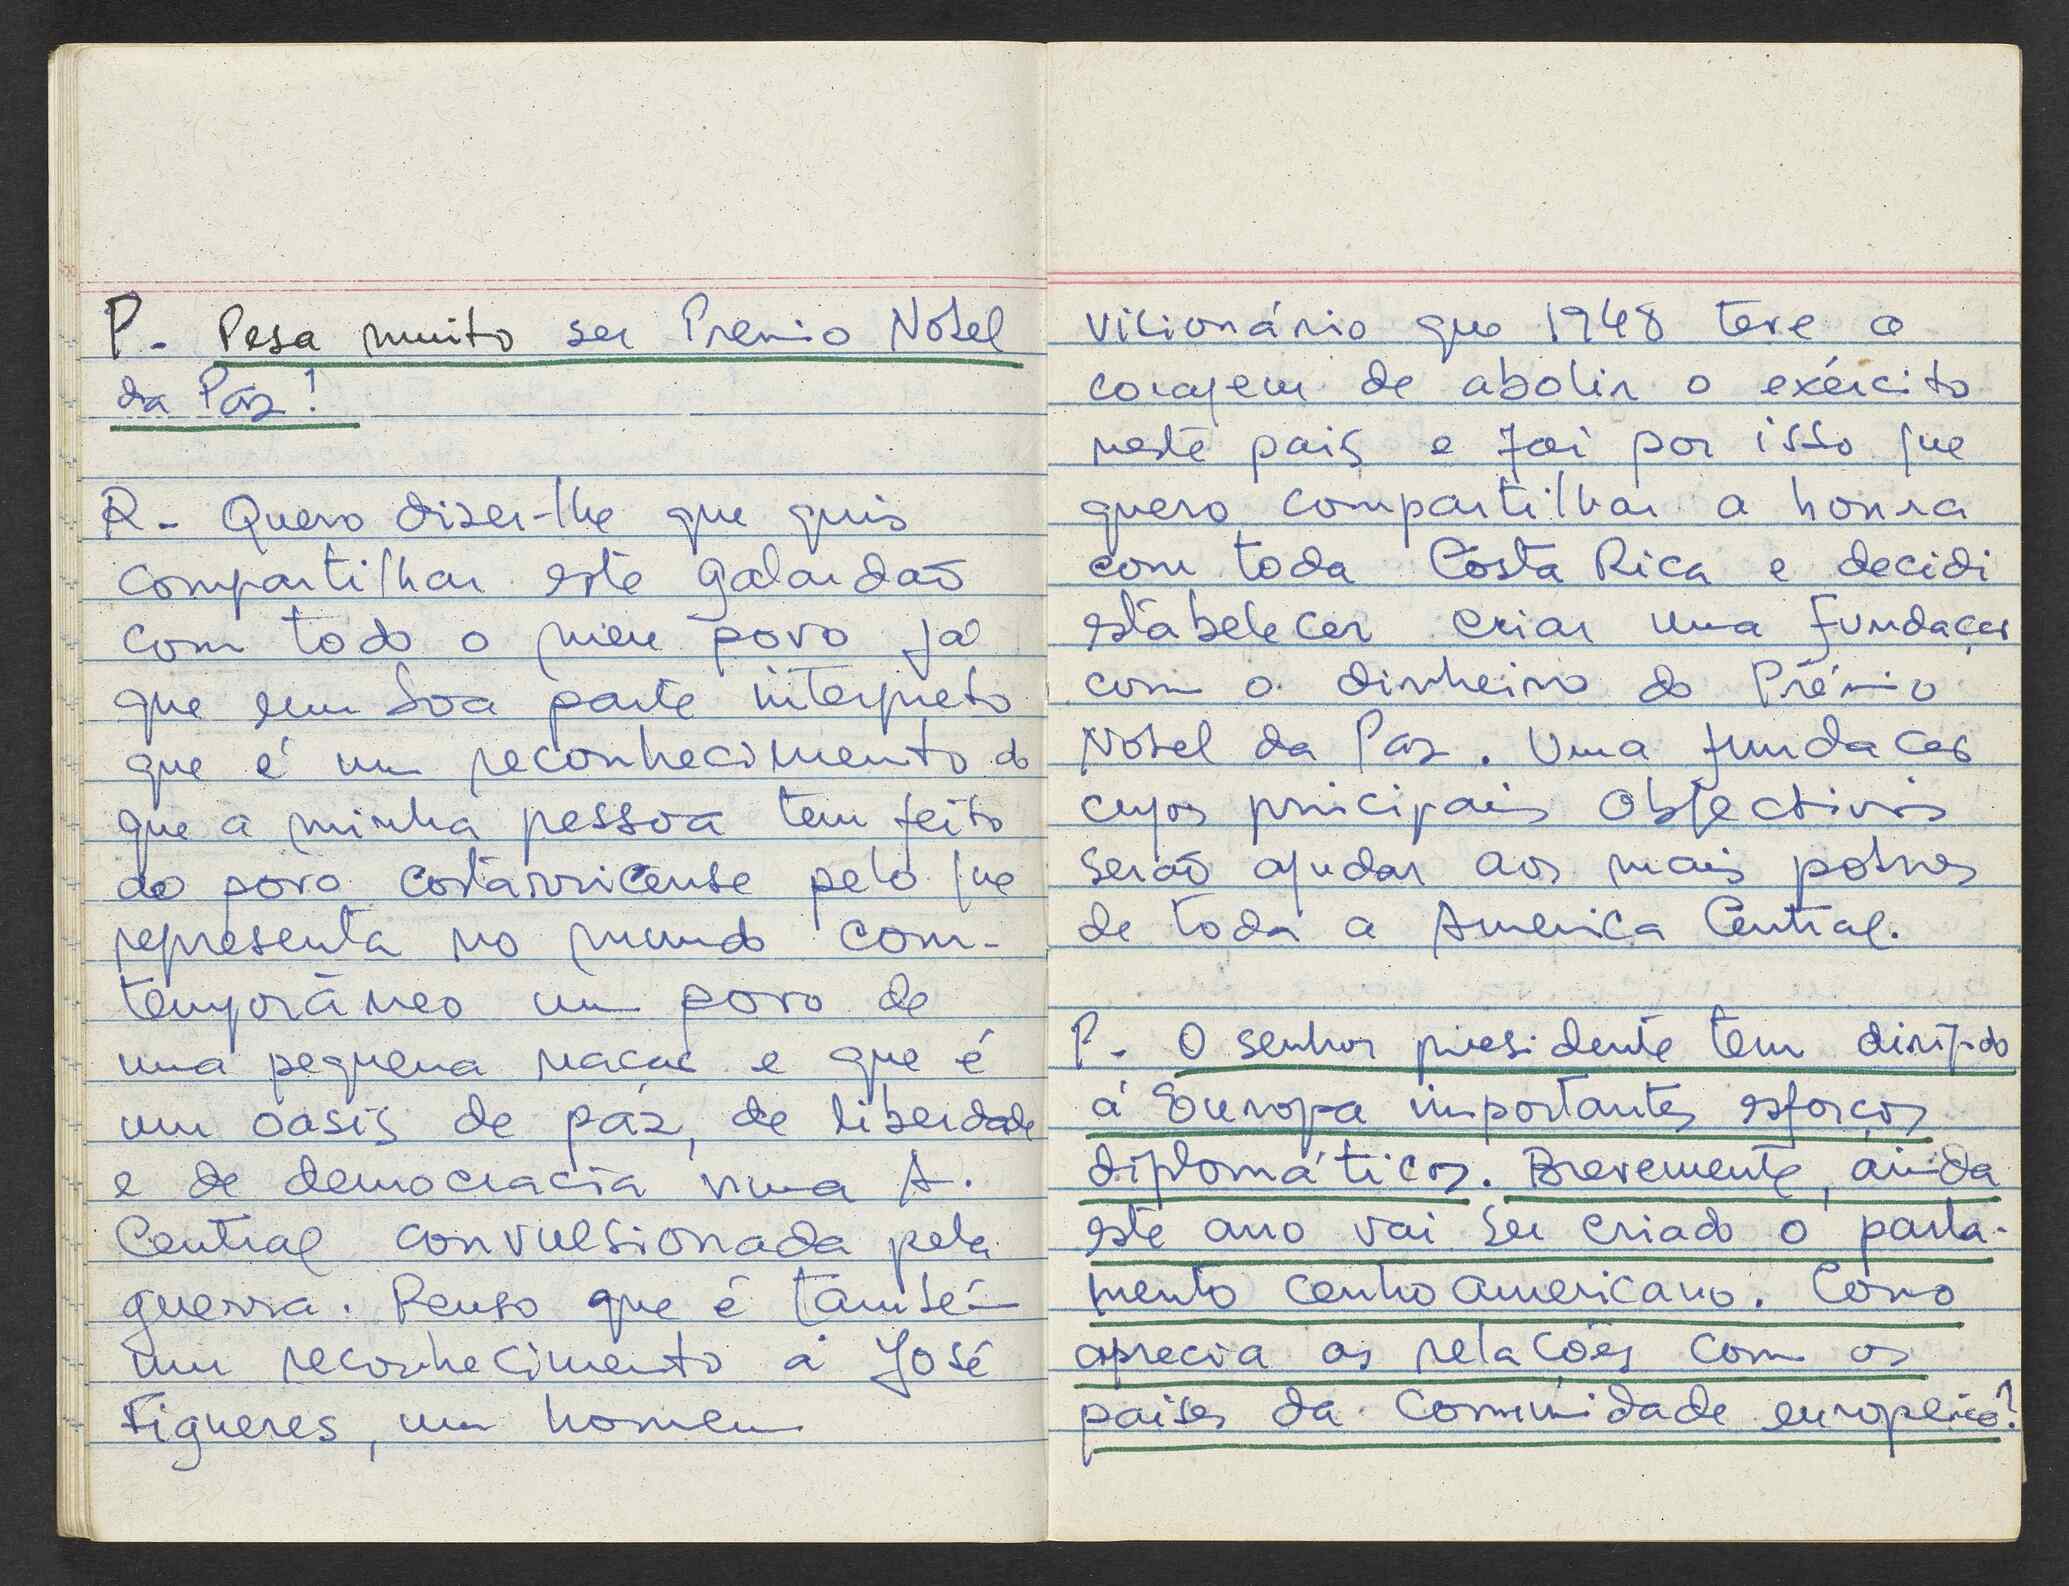 P. Pesa muito ser Premio Nobel
da Paz?
R. Quero dizer-lhe que quis
compartilhar este galardaõ
com todo o meu povo já
que em boa parte interpreto
que é um reconhecimento do
que a minha pessoa tem feito
ao povo costarricense pelo que
representa no mundo com-
temporâneo um povo de
uma pequena nacao e que é
um oasis de paz, de liberdade
e de democracia numa A.
Central convulsionada pela
guerra. Penso que é também
um reconhecimento a José
Figueres, um homem
visionário que 1948 teve a
coragem de abolir o exército
neste pais e foi por isso que
quero compartilhar a honra
com toda Costa Rica e decidi
estabelecer criar uma fundaçao
com o dinheiro do Prémio
Nobel da Paz. Uma fundacao
cujos pricipais objectivos
seraõ ajudar aos mais pobres
de toda a America Central.
P. O senhor presidente tem dirigido
á Europa importantes esforços
diplomáticos. Brevemente, ainda
este ano vai ser criado o parla-
mento centroamericano. Como
aprecia as relações com os
paises da Comunidade europeia?